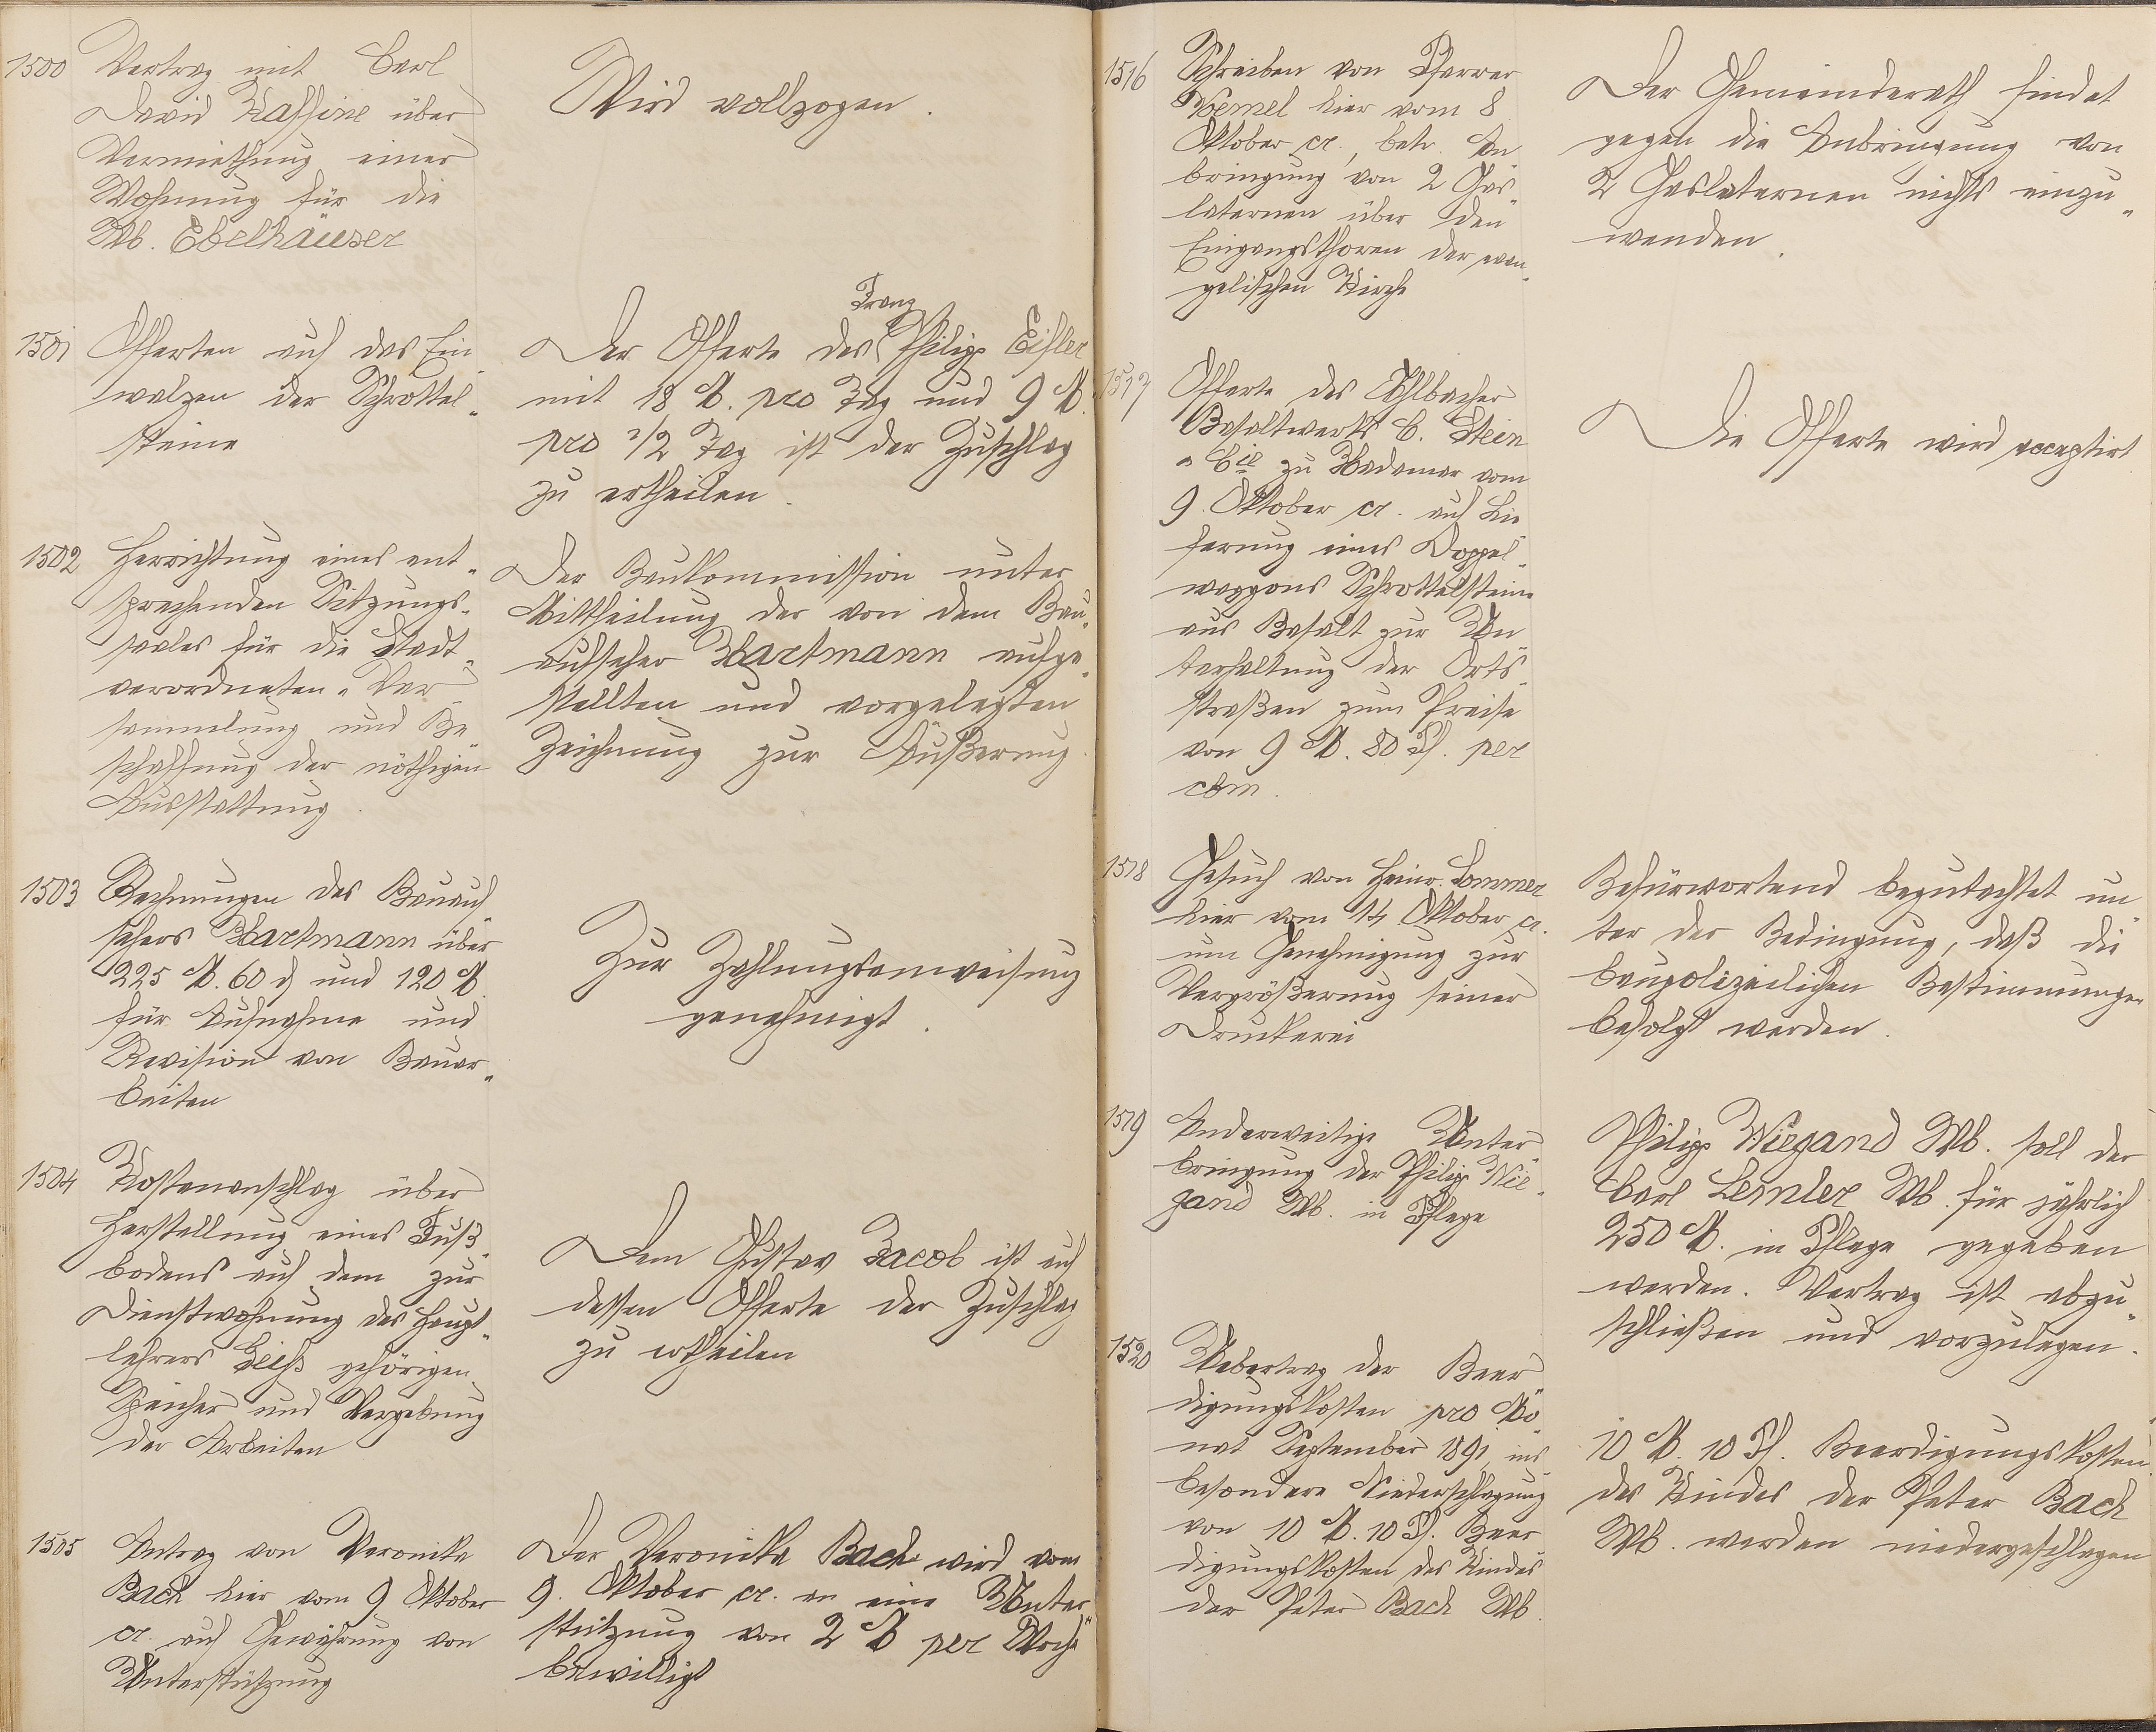 1500
Vertrag mit Carl
David Kassine über
Vermiethung einer
Wohnung für die
Wb. Ebelhäuser
Wird vollzogen.
1501
Offerten auf das Ein-
walzen der Schrottel-
steine
Franz
Der Offerte des Philipp Eifler
mit 18 M. pro Tag und 9 M.
pro 1/2 Tag ist der Zuschlag
zu ertheilen.
1502
Herrichtung eines ent-
sprechenden Sitzungs-
saales für die Stadt-
verordneten-Ver-
sammlung und Be-
schaffung der nöthigen
Ausstattung.
Der Baukommission unter
Mittheilung der von dem Bau-
aufseher Hartmann aufge-
stellten und vorgelegten
Zeichnung zur Äußerung.
1503
Rechnungen des Bauauf-
sehers Hartmann über
225 M. 60 d und 120 M.
für Aufnahme und
Revision von Bauar-
beiten
Zur Zahlungsanweisung
genehmigt.
1504
Kostenanschlag über
Herstellung eines Fuß-
bodens auf dem zur
Dienstwohnung des Haupt-
lehrers Geiß gehörigen
Speicher und Vergebung
der Arbeiten
Dem Gustav Jacob ist auf
dessen Offerte der Zuschlag
zu ertheilen
1505
Antrag von Veronika
Bach hier vom 9 Oktober
cr. auf Gewährung von
Unterstützung
Der Veronika Bach wird vom
9. Oktober cr. an eine Unter-
stützung von 2 M per Woche
bewilligt
1516
Schreiben von Pfarrer
Wemel hier vom 8
Oktober cr., betr. An-
bringung von 2 Gas-
laternen über den
Eingangsthoren der evan-
gelischen Kirche
Der Gemeinderath findet
gegen die Anbringung von
2 Gaslaternen nichts einzu-
wenden.
1517
Offerte des Ahlbacher
Basaltwerks C. Stein
& Cie zu Hadamar vom
9. Oktober cr. auf Lie-
ferung eines Doppel-
waggons Schrottelsteine
aus Basalt zur Un-
terhaltung der Orts-
straßen zum Preise
von 9 M. 80 Pf. per
cbm.
Die Offerte wird acceptirt
1518
Gesuch von Heinr. Sommer
hier vom 14 Oktober cr.
um Genehmigung zur
Vergrößerung seiner
Druckerei
Befürwortend begutachtet un-
ter der Bedingung, daß die
baupolizeilichen Bestimmungen
befolgt werden.
1519
Anderweitige Unter-
bringung der Philipp Wie-
gand Wb. in Pflege
Philipp Wiegand Wb. soll der
Carl Lemler Wb. für jährlich
250 M. in Pflege gegeben
werden. Vertrag ist abzu-
schließen und vorzulegen.
1520
Uebertrag der Beer-
digungskosten pro Mo-
nat September 1891, ins-
besondere Niederschlagung
von 10 M. 10 Pf. Beer-
digungskosten des Kindes
der Peter Bach Wb.
10 M. 10 Pf. Beerdigungskosten
des Kindes der Peter Bach
Wb. werden niedergeschlagen